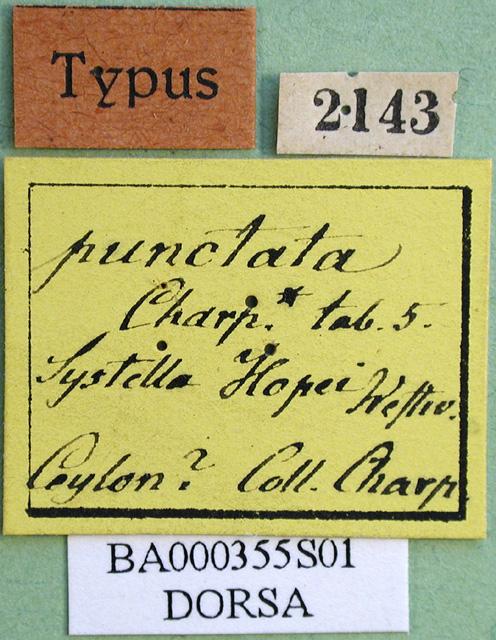 Typus
2143
punctata
Charp.* tab. 5.
Systella Hopei Westw.
Ceylon? Coll. Charp.
BA000355S01
DORSA